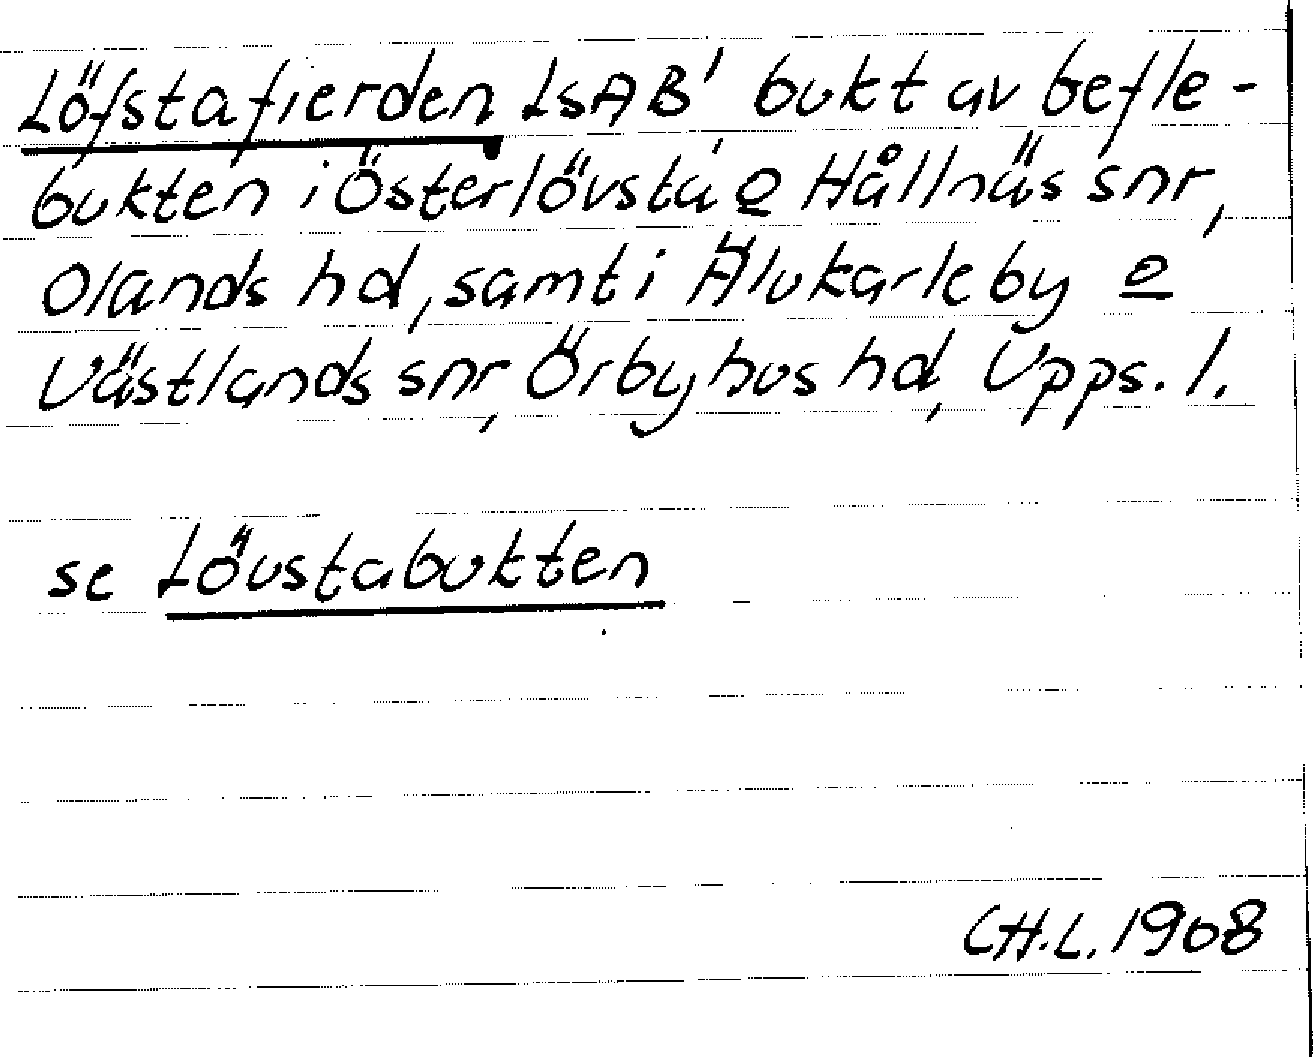 Löfstafierden LSAB' bukt av Gefle-
bukten i Österlövsta o Hållnäs snr,
Olands hd, samt i Älvkarleby o
Västlands snr, Örbyhus hd, Upps. l.
se Lövstabukten
CH.L. 1908